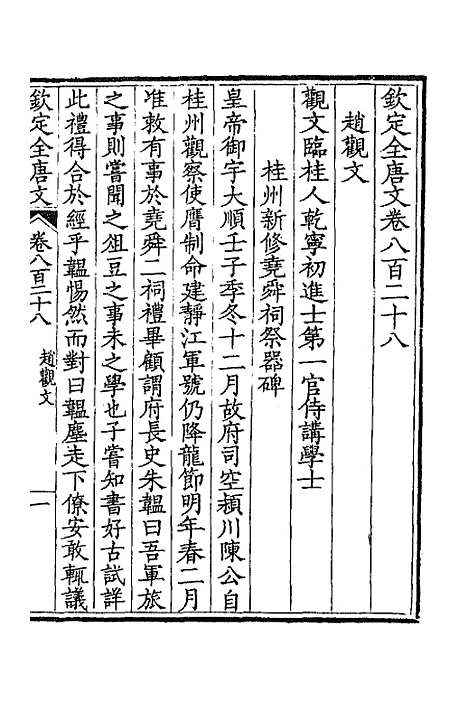 欽定全唐文卷八百二十八
趙觀文
觀文臨桂人乾寧初進士第一官侍講學士
桂州新修堯舜祠祭器碑
皇帝御宇大順壬子季冬十二月故府司空潁川陳公自
桂州觀察使膺制命建靜江軍號仍降龍節明年春二月
准敕有事於堯舜二祠禮畢顧謂府長史朱韞曰吾軍旅
之事則嘗聞之俎豆之事未之學也子嘗知書好古試詳
此禮得合於經乎韞惕然而對曰韞塵走下僚安敢輒議
欽定全唐文
卷八百二十八
趙觀文
一